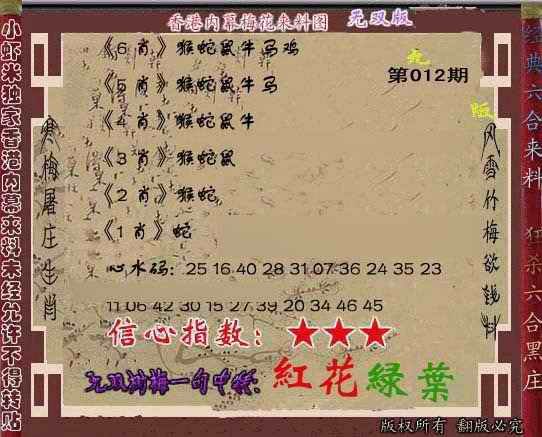 香港内幕梅花来料图 无双版
《6 肖》猴蛇鼠牛马鸡
《5 肖》猴蛇鼠牛马
《4 肖》猴蛇鼠牛
《3 肖》猴蛇鼠
《2 肖》猴蛇
《1 肖》蛇
无
第012期
版
心水码: 25 16 40 28 31 07 36 24 35 23
11 06 42 30 15 27 39 20 34 46 45
信心指数: ★★★
紅花緑葉
版权所有 翻版必究
小虾米独家香港内幕来料未经允许不得转贴
寒梅屠庄生肖
风雪竹梅欲钱料
经典六合来料
狂杀六合黑庄